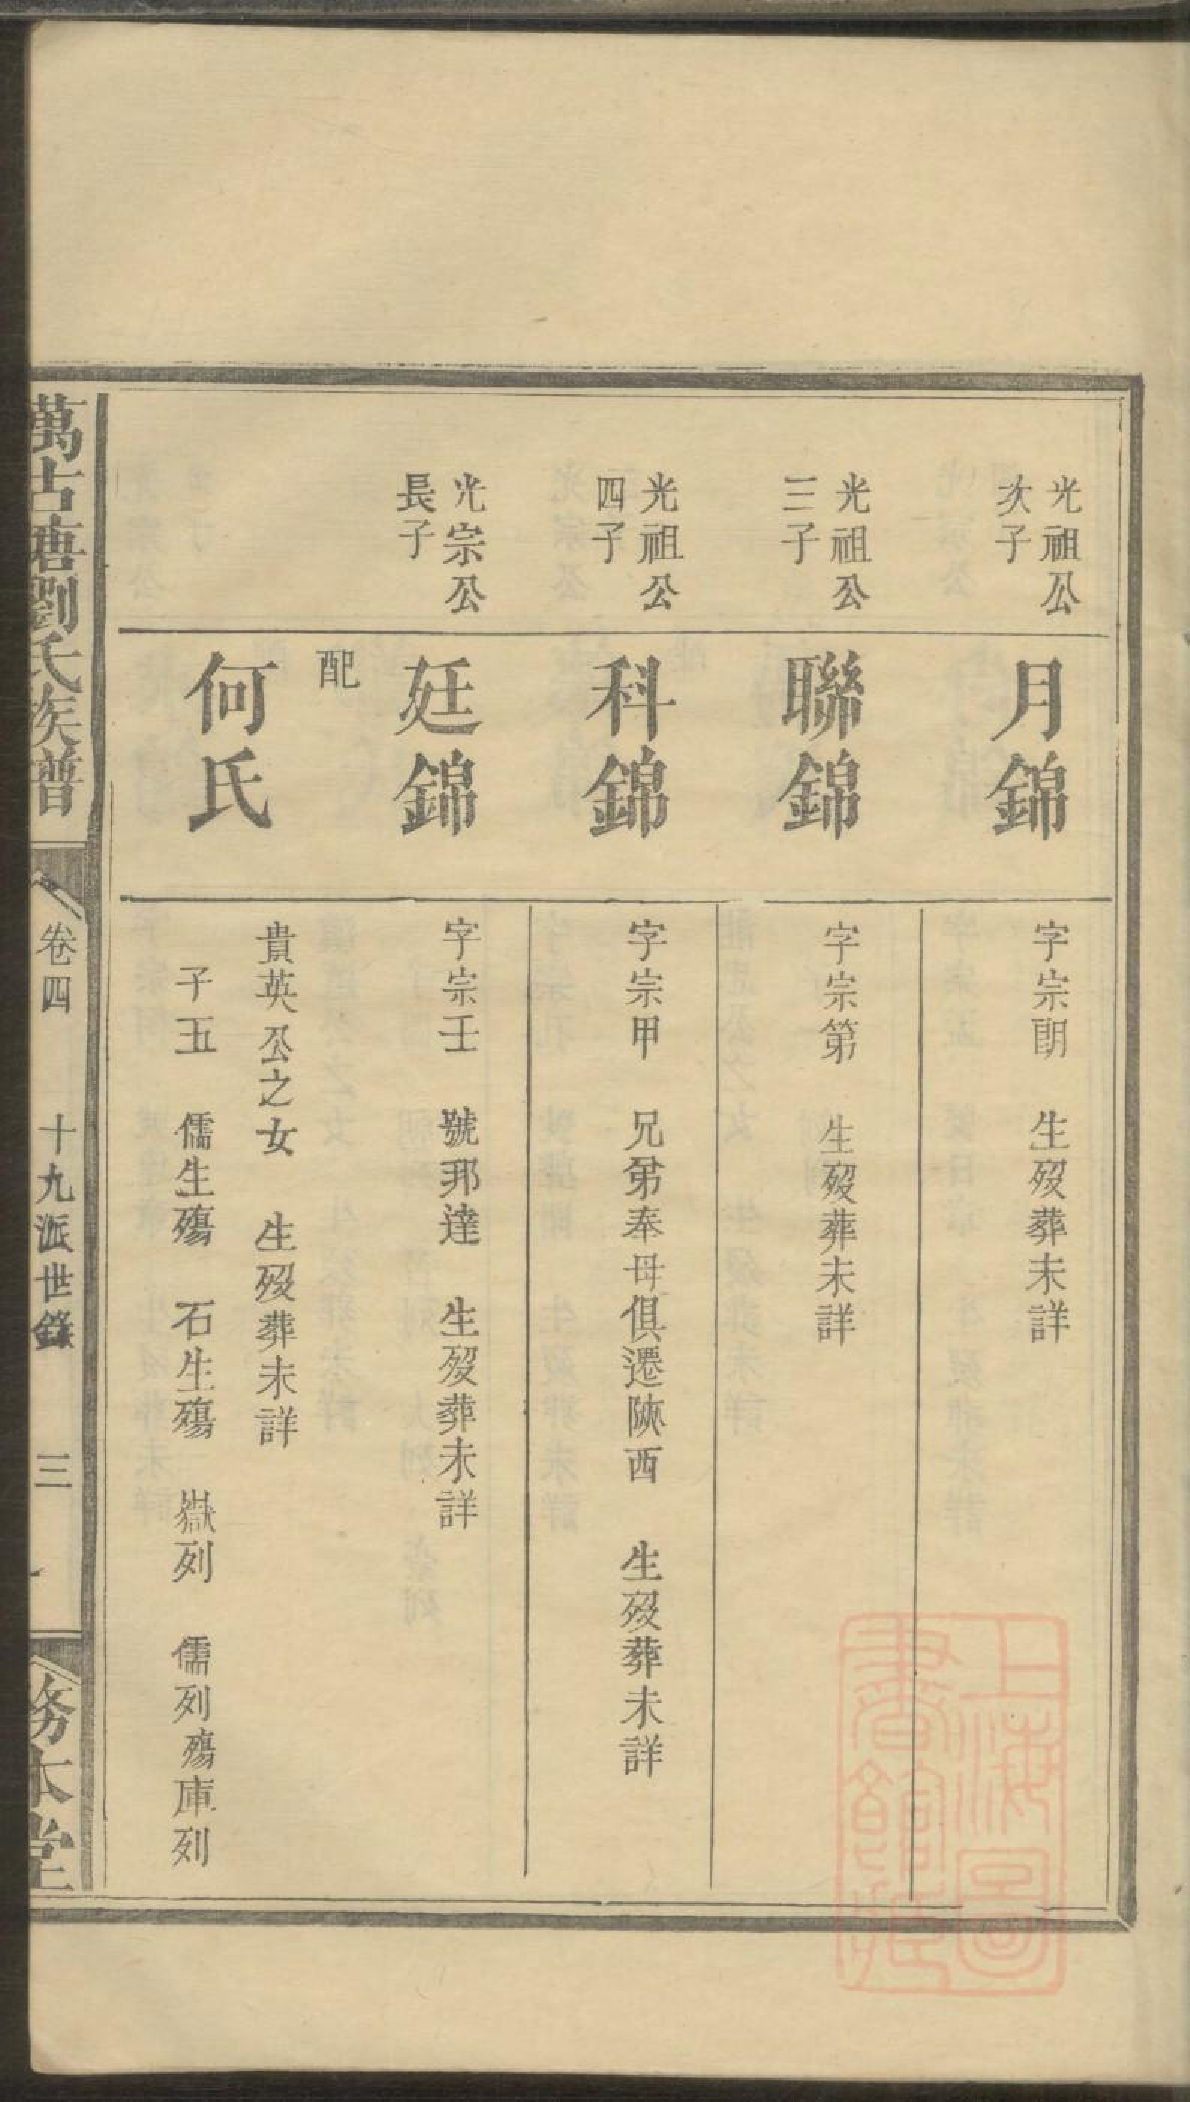 光祖公
次子
月錦
字宗朗 生歿葬未詳
光祖公
三子
聯錦
字宗第 生歿葬未詳
光祖公
四子
科錦
字宗甲 兄弟奉母俱遷陝西 生歿葬未詳
光宗公
長子
廷錦
字宗壬 號邦達 生歿葬未詳
配
何氏
貴英公之女 生歿葬未詳
子五 儒生殤 石生殤 嶽列 儒列殤庫列
萬古塘劉氏族譜
卷四 十九派世錄 三
務本堂
上海圖
書館藏